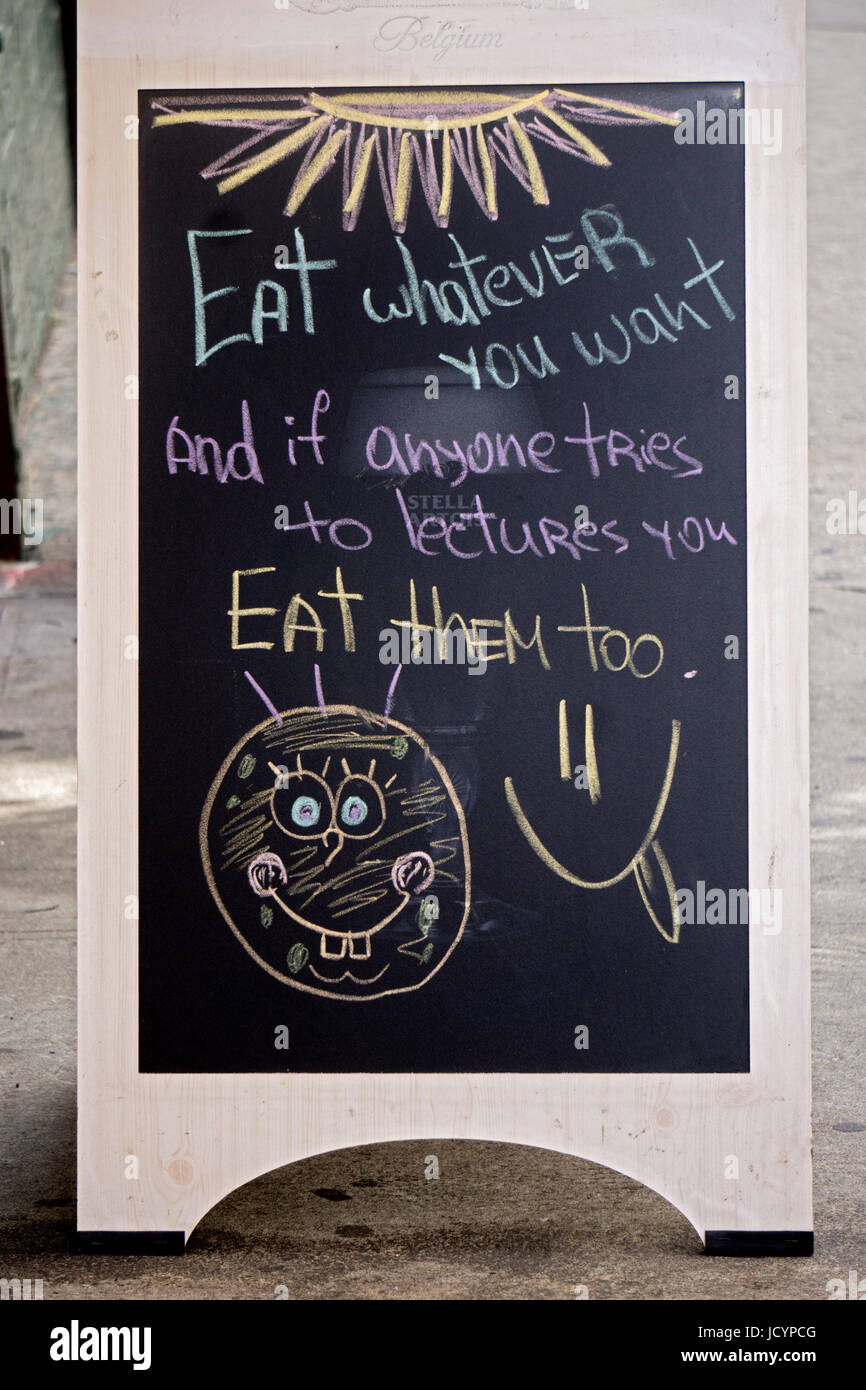 Belgium
Eat whatever
you want
And if anyone tries
STELLA
ARTOIS
to lectures you
Eat them too.
alamy
Image ID: JCYPCG
www.alamy.com